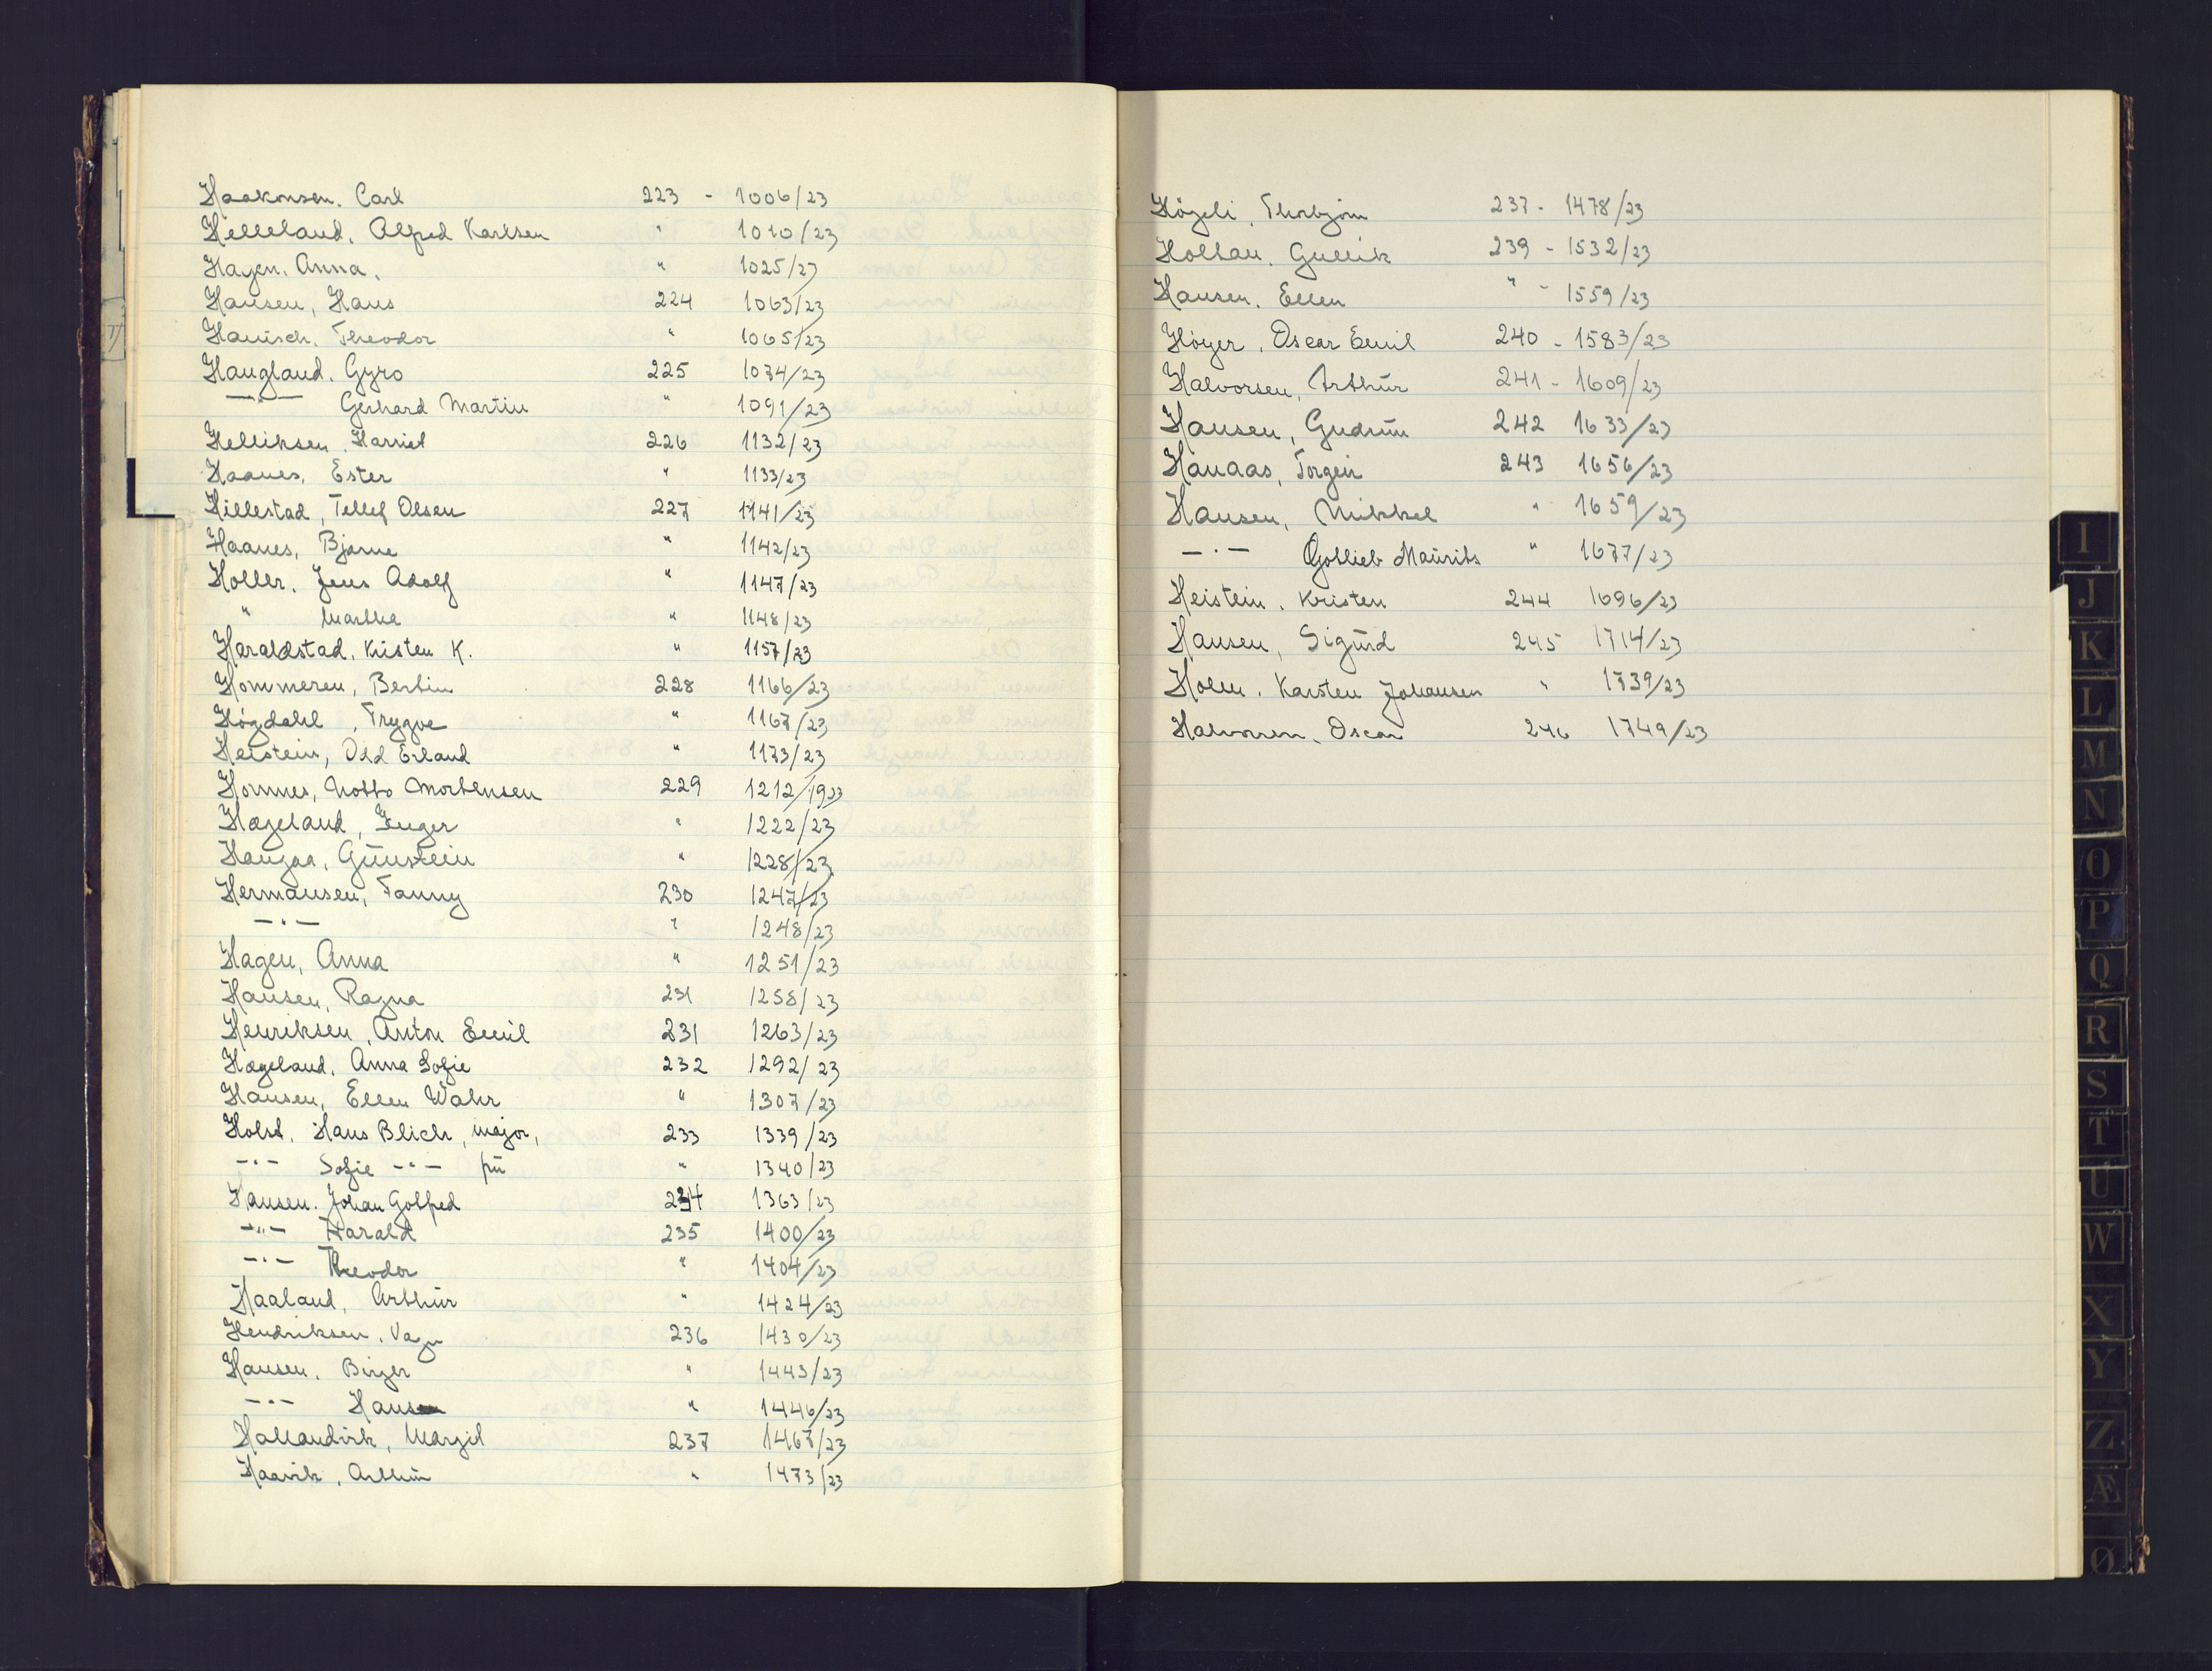 Haakonsen. Carl 223 - 1006/23
Helleland. Alfred Karlsen " 1010/23
Hagen. Anna. " 1025/23
Hansen, Hans 224 - 1063/23
Hanisch. Theodor " 1065/23
Haugland. Gyro 225 1074/23
—"— Gerhard Martin " 1091/23
Helliksen. Harriet 226 1132/23
Haanes, Ester " 1133/23
Hillestad, Tellef Olsen 227 1141/23
Haanes, Bjarne " 1142/23
Holler. Jens Adolf " 1147/23
" Martha " 1148/23
Haraldstad, Kristen K. " 1157/23
Hommeren, Bertin 228 1166/23
Høgdahl, Trygve " 1167/23
Heistein, Odd Erland " 1173/23
Hornnes, Notto Mortensen 229 1212/1923
Hægeland, Inger " 1222/23
Haugaa, Gunstein " 1228/23
Hermansen, Fanny 230 1247/23
—"— " 1248/23
Hagen, Anna " 1251/23
Hansen, Ragna 231 1258/23
Henriksen, Anton Emil 231 1263/23
Hægeland. Anna Sofie 232 1292/23
Hansen, Ellen Wahr " 1307/23
Holst. Hans Blich, major, 233 1339/23
—"— Sofie —"— fru " 1340/23
Hansen. Johan Gotfred 234 1363/23
—"— Harald 235 1400/23
—"— Theodor " 1404/23
Haaland, Arthur " 1424/23
Hendriksen. Vagn 236 1430/23
Hansen. Birger " 1443/23
—"— Hans " 1446/23
Hallandvik, Margit 237 1467/23
Haavik, Arthur " 1473/23
Høgeli, Thorbjørn 237 - 1478/23
Holtan. Gullik 239 - 1532/23
Hansen. Ellen " - 1559/23
Høyer. Oscar Emil 240 - 1583/23
Halvorsen, Arthur 241 - 1609/23
Hansen, Gudrun 242 1633/23
Hanaas, Torgeir 243 1656/23
Hansen, Mikkel " 1659/23
—"— Gotlieb Maurits " 1677/23
Heistein. Kristen 244 1696/23
Hansen, Sigurd 245 1714/23
Holm. Karsten Johansen " 1739/23
Halvorsen, Oscar 246 1749/23
I
J
K
L
M
N
O
P
Q
R
S
T
U
W
X
Y
Z
Æ
Ø